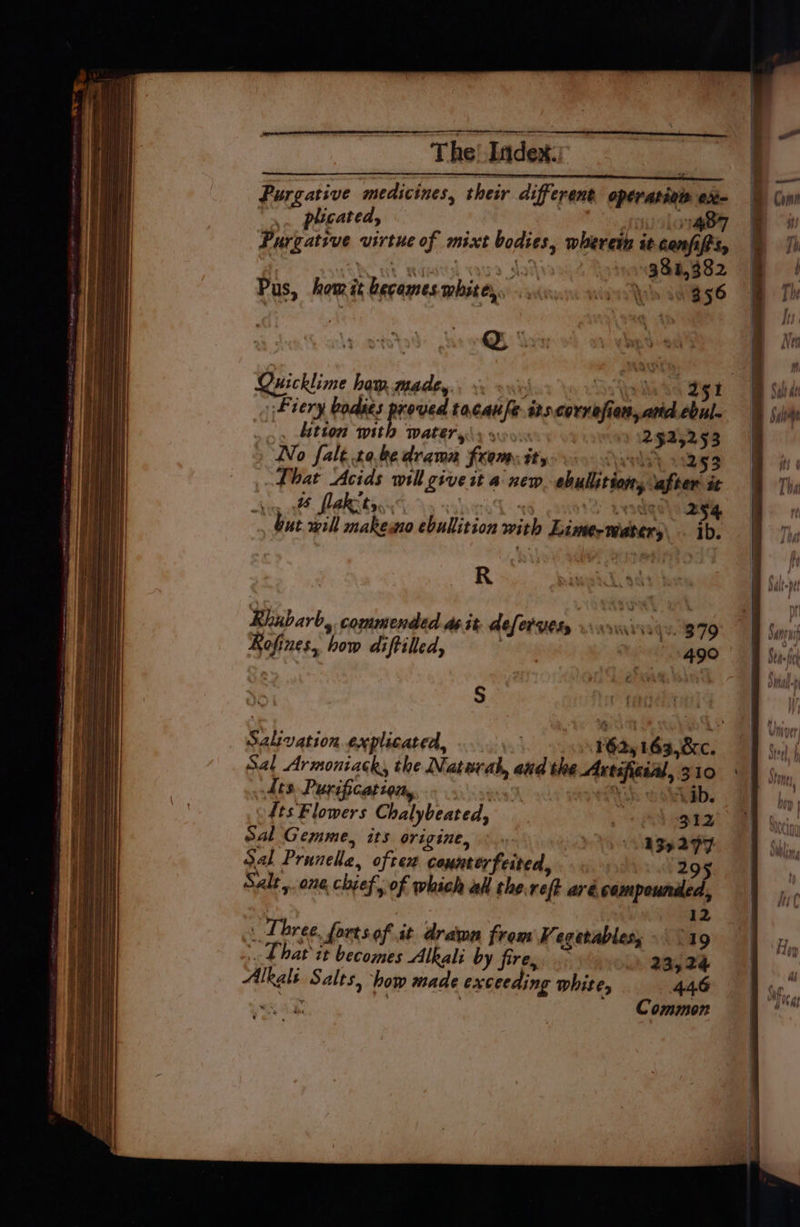 The Index.
Purgative medicines, their different operation ex-
plicated, 487
Purgative virtue of mixt bodies, wherein it consists,
381,382
Pus, how it becomes white, 356
Q
Quicklime how made, 251
Fiery bodies proved to cause its corrosion, and ebul-
lition with water, 252,253
No salt to be drawn from it, 253
That Acids will give it a new ebullition, after it
is flak't, 254
but will make no ebullition with Lime-water, ib.
R
Rhubarb, commended as it deserves, 379
Rosines, how distilled, 490
S
Salivation explicated, 162,163,&c.
Sal Armoniack, the Natural, and the Artificial, 310
Its Purification, ib.
Its Flowers Chalybeated, 312
Sal Gemme, its origine, 13,277
Sal Prunella, often counterfeited, 295
Salt, one chief, of which all the rest are compounded,
12
Three sorts of it drawn from Vegetables, 19
That it becomes Alkali by fire, 23,24
Alkali Salts, how made exceeding white, 446
Common